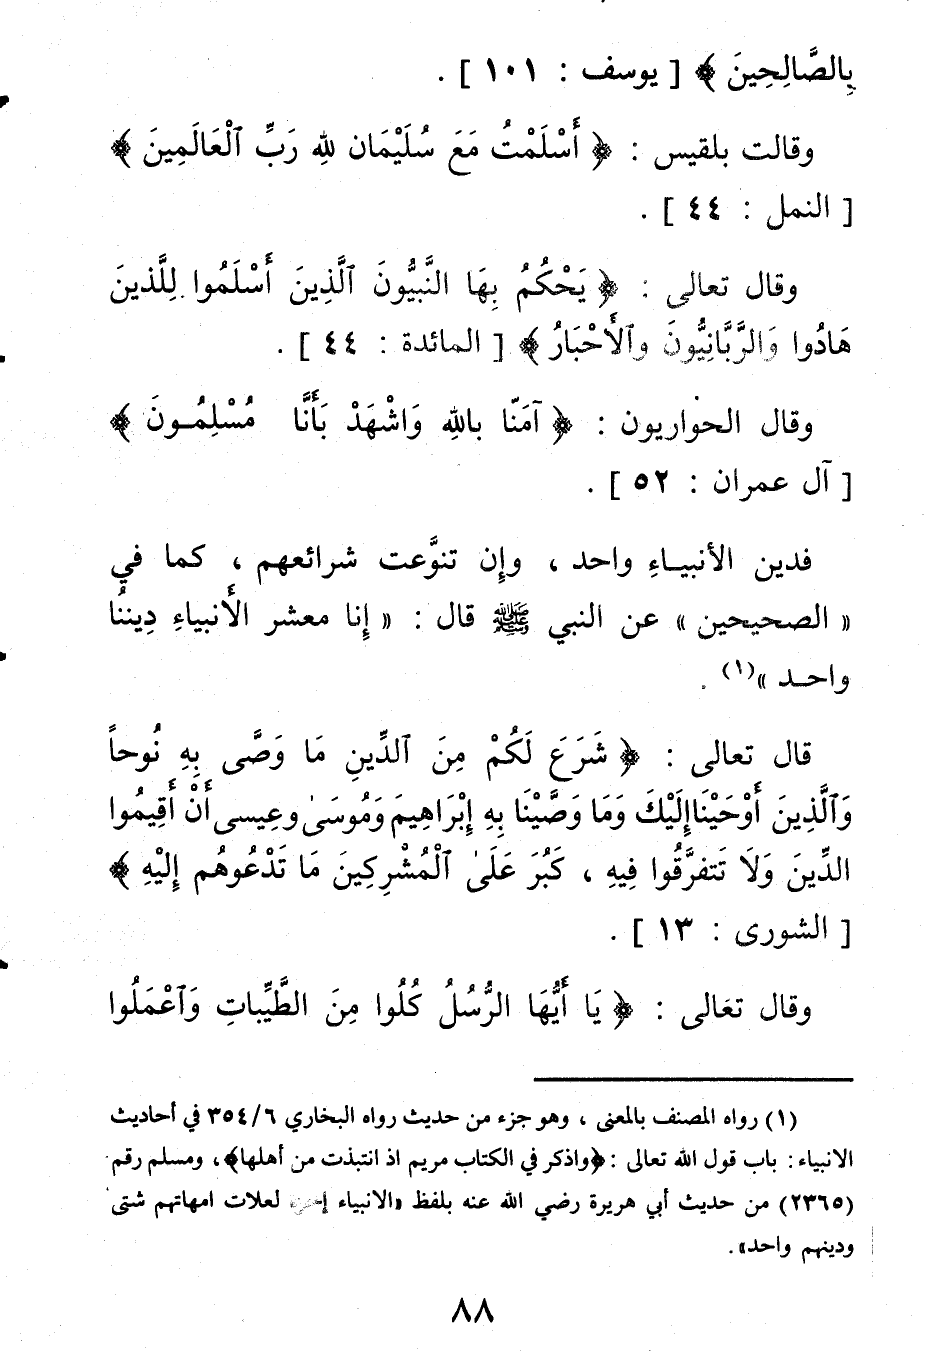 بِالصَّالِحِينَ ﴾ [ يوسف : ١٠١ ] .
وقالت بلقيس : ﴿ أَسْلَمْتُ مَعَ سُلَيْمَان لِلهِ رَبِّ ٱلْعَالَمِينَ ﴾
[ النمل : ٤٤ ] .
وقال تعالى : ﴿ يَحْكُمُ بِهَا النَّبِيُّونَ ٱلَّذِينَ أَسْلَمُوا لِلَّذينَ
هَادُوا وَالرَّبَّانِيُّونَ وٱلأَحْبَارُ ﴾ [ المائدة : ٤٤ ] .
وقال الحواريون : ﴿ آمَنّا باللهِ وَاشْهَدْ بَأَنَّا مُسْلِمُـونَ ﴾
[ آل عمران : ٥٢ ] .
فدين الأنبيـاءِ واحد ، وإن تنوَّعت شرائعهم ، كما في
« الصحيحين » عن النبي ﷺ قال : « إنا معشر الأَنبياءِ دِيننُا
واحـد »(١) .
قال تعالى : ﴿ شَرَعَ لَكُمْ مِنَ ٱلدِّينِ مَا وَصَّى بِهِ نُوحاً
وَٱلَّذِينَ أَوْحَيْنَا إلَيْكَ وَمَا وَصَّيْنَا بِهِ إبْرَاهِيمَ وَمُوسَىٰ وعِيسى أَنْ أَقِيمُوا
الدِّينَ وَلَا تَتفرَّقُوا فِيهِ ، كَبُرَ عَلَىٰ ٱلْمُشْرِكِينَ مَا تَدْعُوهُم إِلَيْهِ ﴾
[ الشورى : ١٣ ] .
وقال تعَالى : ﴿ يَا أَيُّهَا الرُّسُلُ كُلُوا مِنَ الطَّيِّباتِ وَٱعْمَلُوا
(١) رواه المصنف بالمعنى ، وهو جزء من حديث رواه البخاري ٣٥٤/٦ في أحاديث
الانبياء : باب قول الله تعالى : ﴿واذكر في الكتاب مريم اذ انتبذت من أهلها﴾ ، ومسلم رقم
(٢٣٦٥) من حديث أبي هريرة رضي الله عنه بلفظ «الانبياء لعلات امهاتهم شتى
ودينهم واحد» .
٨٨